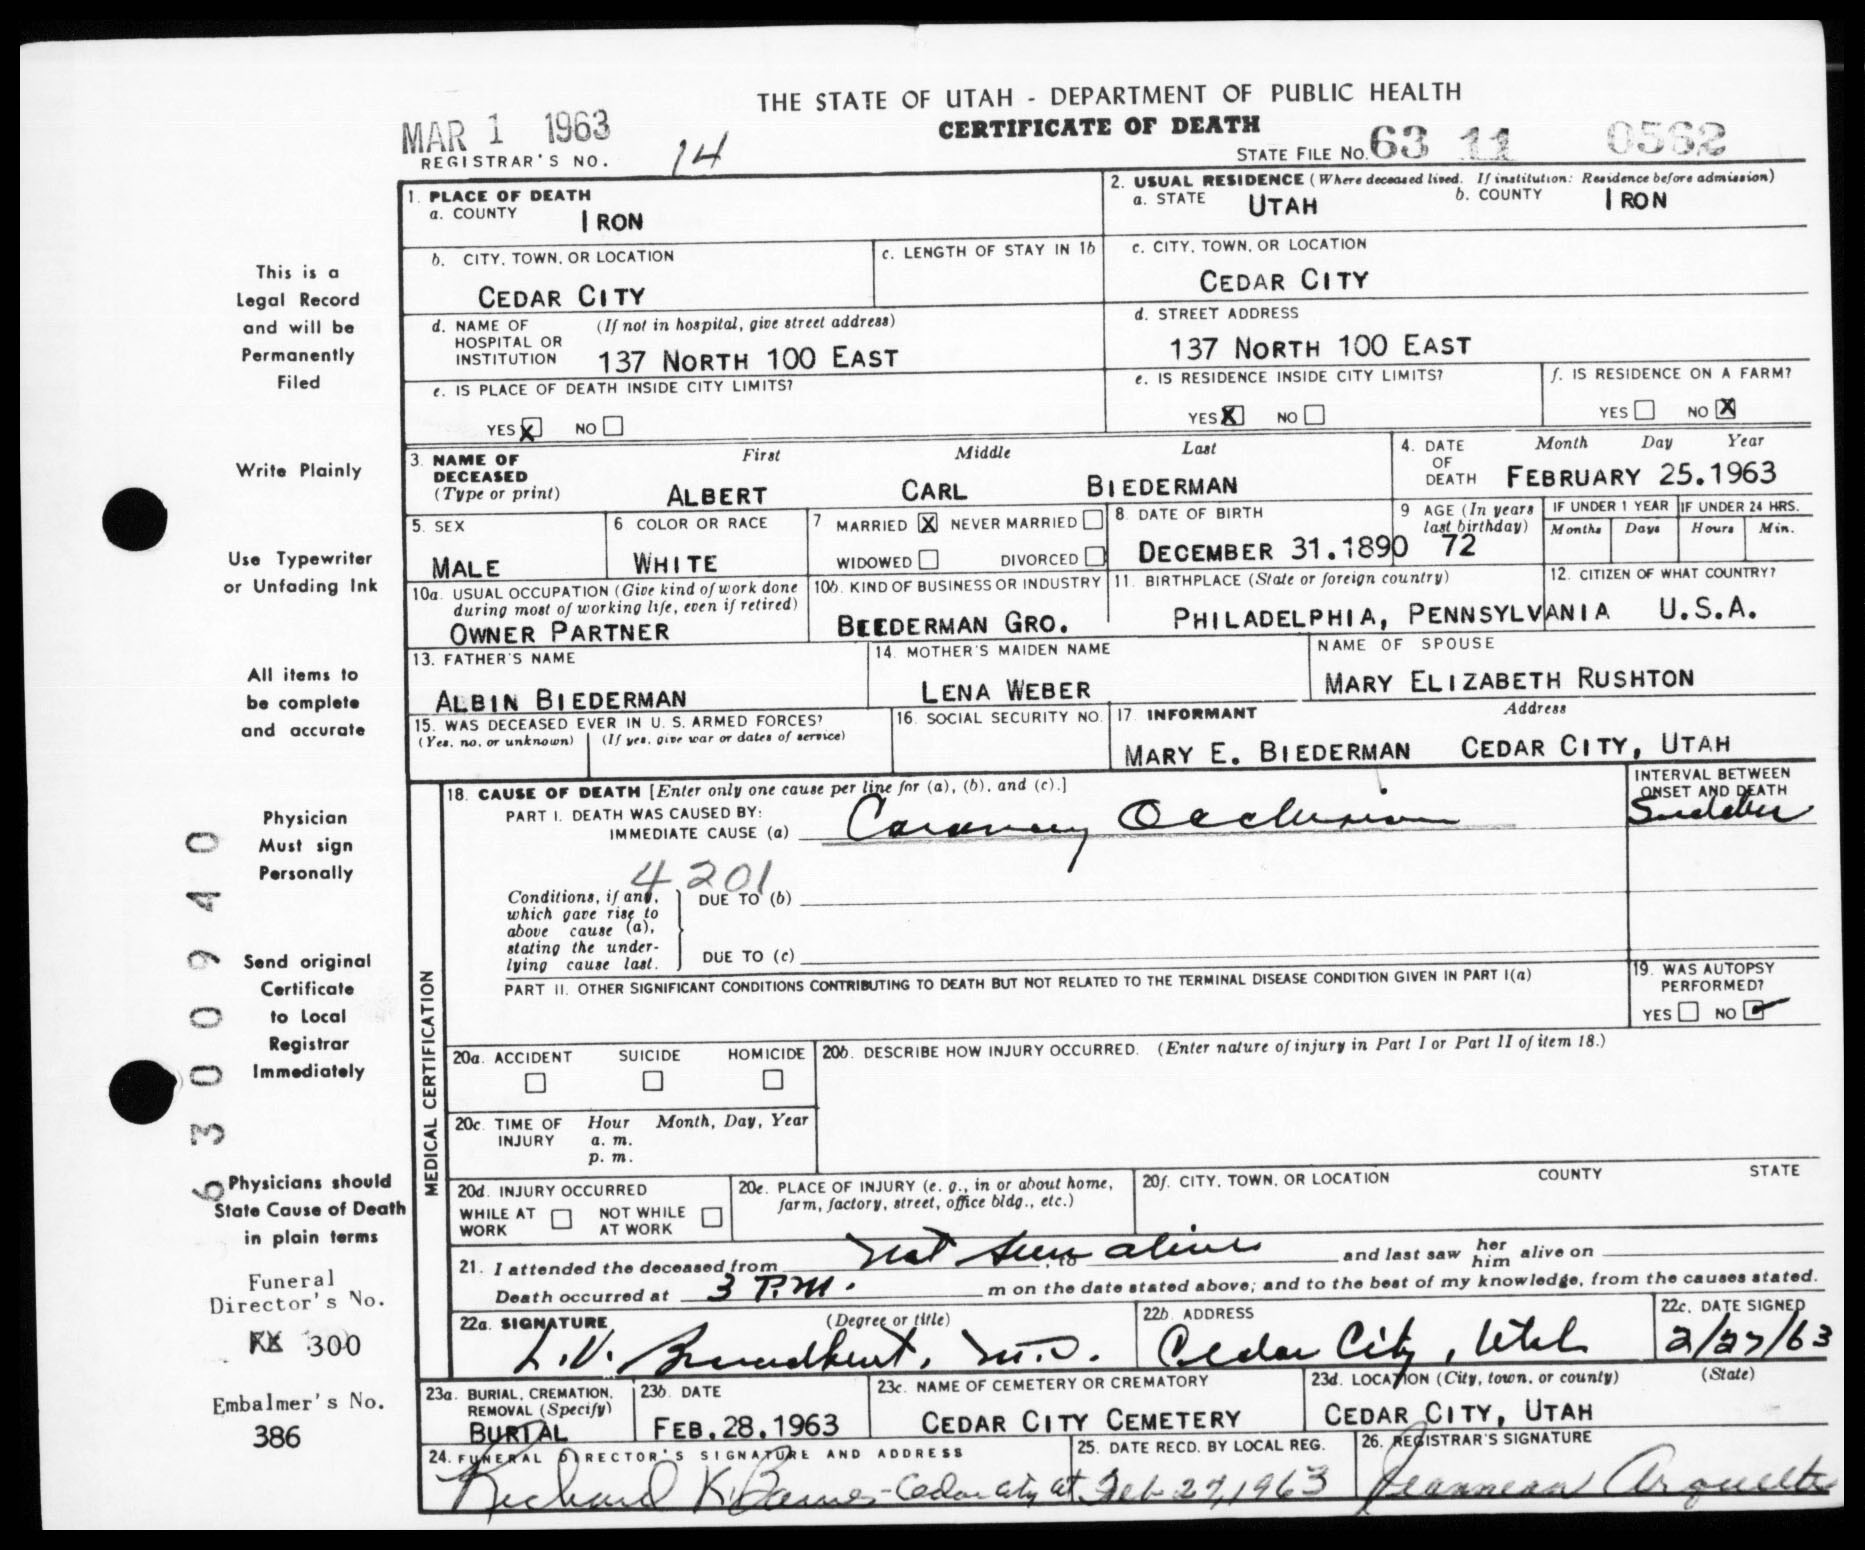 THE STATE OF UTAH - DEPARTMENT OF PUBLIC HEALTH
CERTIFICATE OF DEATH
MAR 1 1963
REGISTRAR'S NO. 14
STATE FILE NO. 63 11 0562
1. PLACE OF DEATH
a. COUNTY IRON
2. USUAL RESIDENCE (Where deceased lived. If institution: Residence before admission)
a. STATE UTAH b. COUNTY IRON
b. CITY, TOWN, OR LOCATION
CEDAR CITY
c. LENGTH OF STAY IN 1b
c. CITY, TOWN, OR LOCATION
CEDAR CITY
d. NAME OF HOSPITAL OR INSTITUTION (If not in hospital, give street address)
137 NORTH 100 EAST
d. STREET ADDRESS
137 NORTH 100 EAST
e. IS PLACE OF DEATH INSIDE CITY LIMITS?
YES X NO
e. IS RESIDENCE INSIDE CITY LIMITS?
YES X NO
f. IS RESIDENCE ON A FARM?
YES NO X
3. NAME OF DECEASED (Type or print)
First Middle Last
ALBERT CARL BIEDERMAN
4. DATE OF DEATH Month Day Year
FEBRUARY 25.1963
5. SEX
MALE
6. COLOR OR RACE
WHITE
7 MARRIED X NEVER MARRIED
WIDOWED DIVORCED
8. DATE OF BIRTH
DECEMBER 31.1890
9 AGE (In years last birthday)
72
IF UNDER 1 YEAR IF UNDER 24 HRS.
Months Days Hours Min.
10a. USUAL OCCUPATION (Give kind of work done during most of working life, even if retired)
OWNER PARTNER
10b. KIND OF BUSINESS OR INDUSTRY
BEEDERMAN GRO.
11. BIRTHPLACE (State or foreign country)
PHILADELPHIA, PENNSYLVANIA
12. CITIZEN OF WHAT COUNTRY?
U.S.A.
13. FATHER'S NAME
ALBIN BIEDERMAN
14. MOTHER'S MAIDEN NAME
LENA WEBER
NAME OF SPOUSE
MARY ELIZABETH RUSHTON
15. WAS DECEASED EVER IN U. S. ARMED FORCES?
(Yes, no, or unknown) (If yes, give war or dates of service)
16. SOCIAL SECURITY NO.
17. INFORMANT Address
MARY E. BIEDERMAN CEDAR CITY, UTAH
MEDICAL CERTIFICATION
18. CAUSE OF DEATH [Enter only one cause per line for (a), (b), and (c).]
PART I. DEATH WAS CAUSED BY:
IMMEDIATE CAUSE (a) Coronary Occlusion
INTERVAL BETWEEN ONSET AND DEATH
Sudden
4201
Conditions, if any, which gave rise to above cause (a), stating the underlying cause last.
DUE TO (b)
DUE TO (c)
PART II. OTHER SIGNIFICANT CONDITIONS CONTRIBUTING TO DEATH BUT NOT RELATED TO THE TERMINAL DISEASE CONDITION GIVEN IN PART I(a)
19. WAS AUTOPSY PERFORMED?
YES NO
20a. ACCIDENT SUICIDE HOMICIDE
20b. DESCRIBE HOW INJURY OCCURRED. (Enter nature of injury in Part I or Part II of item 18.)
20c. TIME OF INJURY Hour Month, Day, Year
a. m.
p. m.
20d. INJURY OCCURRED
WHILE AT WORK NOT WHILE AT WORK
20e. PLACE OF INJURY (e. g., in or about home, farm, factory, street, office bldg., etc.)
20f. CITY, TOWN, OR LOCATION COUNTY STATE
21. I attended the deceased from Not seen alive, to and last saw her him alive on
Death occurred at 3 P.M. m on the date stated above; and to the best of my knowledge, from the causes stated.
22a. SIGNATURE (Degree or title)
L.V. Broadbent, M.D.
22b. ADDRESS
Cedar City, Utah
22c. DATE SIGNED
2/27/63
23a. BURIAL, CREMATION, REMOVAL (Specify)
BURIAL
23b. DATE
FEB.28.1963
23c. NAME OF CEMETERY OR CREMATORY
CEDAR CITY CEMETERY
23d. LOCATION (City, town, or county) (State)
CEDAR CITY, UTAH
24. FUNERAL DIRECTOR'S SIGNATURE AND ADDRESS
Richard K. Barnes - Cedar City Ut
25. DATE RECD. BY LOCAL REG.
Feb 27, 1963
26. REGISTRAR'S SIGNATURE
Jeannean Arquette
This is a
Legal Record
and will be
Permanently
Filed
Write Plainly
Use Typewriter
or Unfading Ink
All items to
be complete
and accurate
Physician
Must sign
Personally
Send original
Certificate
to Local
Registrar
Immediately
Physicians should
State Cause of Death
in plain terms
Funeral
Director's No.
300
Embalmer's No.
386
6300940